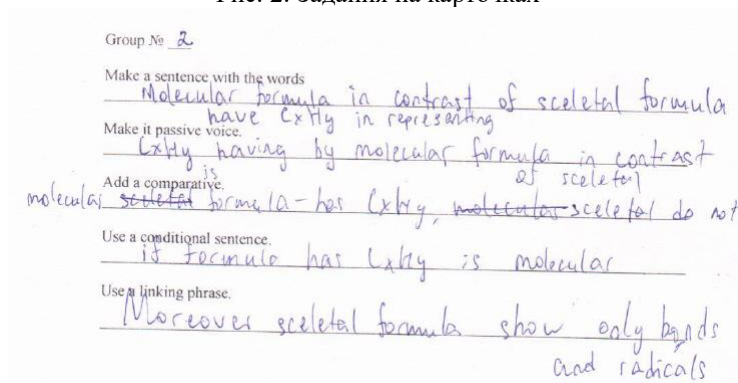 Рис. 2. Задания на карточках
Group № 2
Make a sentence with the words
Molecular formula in contrast of sceletal formula
have CxHy in representing
Make it passive voice.
CxHy having by molecular formula in contrast
is of sceletal
Add a comparative.
molecular sceletal formula - has CxHy, molecular sceletal do not
Use a conditional sentence.
if formula has CxHy is molecular
Use a linking phrase.
Moreover sceletal formula show only bands
and radicals